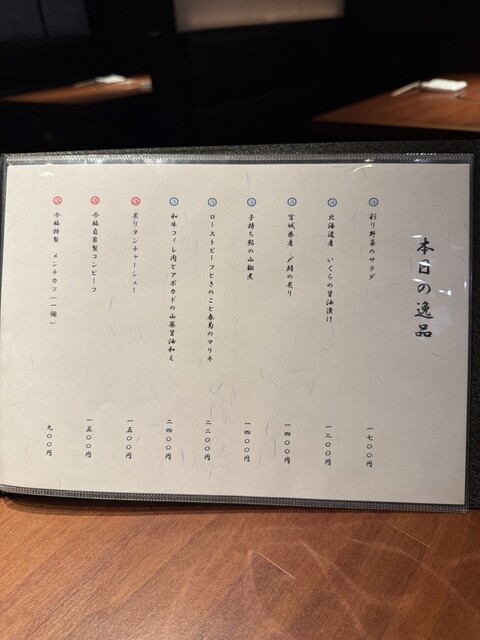 本日の逸品
彩り野菜のサラダ 一七〇〇円
北海道産 いくらの醤油漬け 一二〇〇円
宮城県産 〆鯖の炙り 一四〇〇円
子持ち鮎の山椒煮 一四〇〇円
ローストビーフときのこと春菊のマリネ 二二〇〇円
和牛フィレ肉とアボカドの山葵醤油和え 二四〇〇円
炙りタンチャーシュー 一五〇〇円
今福自家製コンビーフ 一五〇〇円
今福特製 メンチカツ（一個） 九〇〇円